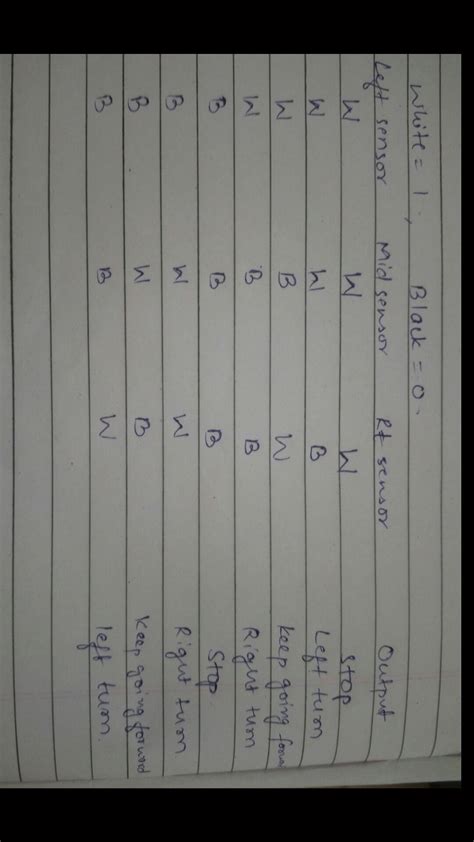 White = 1 , Black = 0.
Left sensor Mid sensor Rt sensor Output
W W W Stop
W W B Left turn
W B W Keep going
W B B Right turn
B B B Stop
B W W Right turn
B W B Keep going forward
B B W left turn.